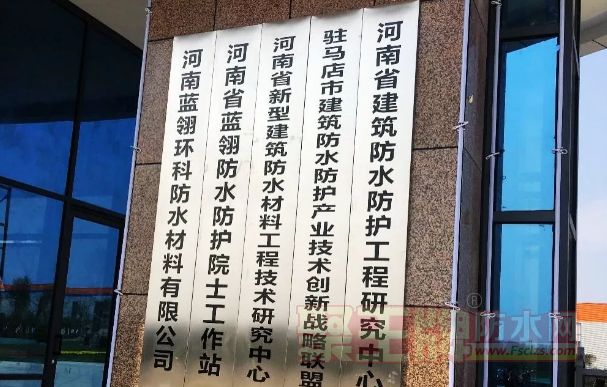 河南省建筑防水防护工程研究中心
驻马店市建筑防水防护产业技术创新战略联盟
河南省新型建筑防水材料工程技术研究中心
河南省蓝翎防水防护院士工作站
河南蓝翎环科防水材料有限公司
防水网
www.Fscl.s.com